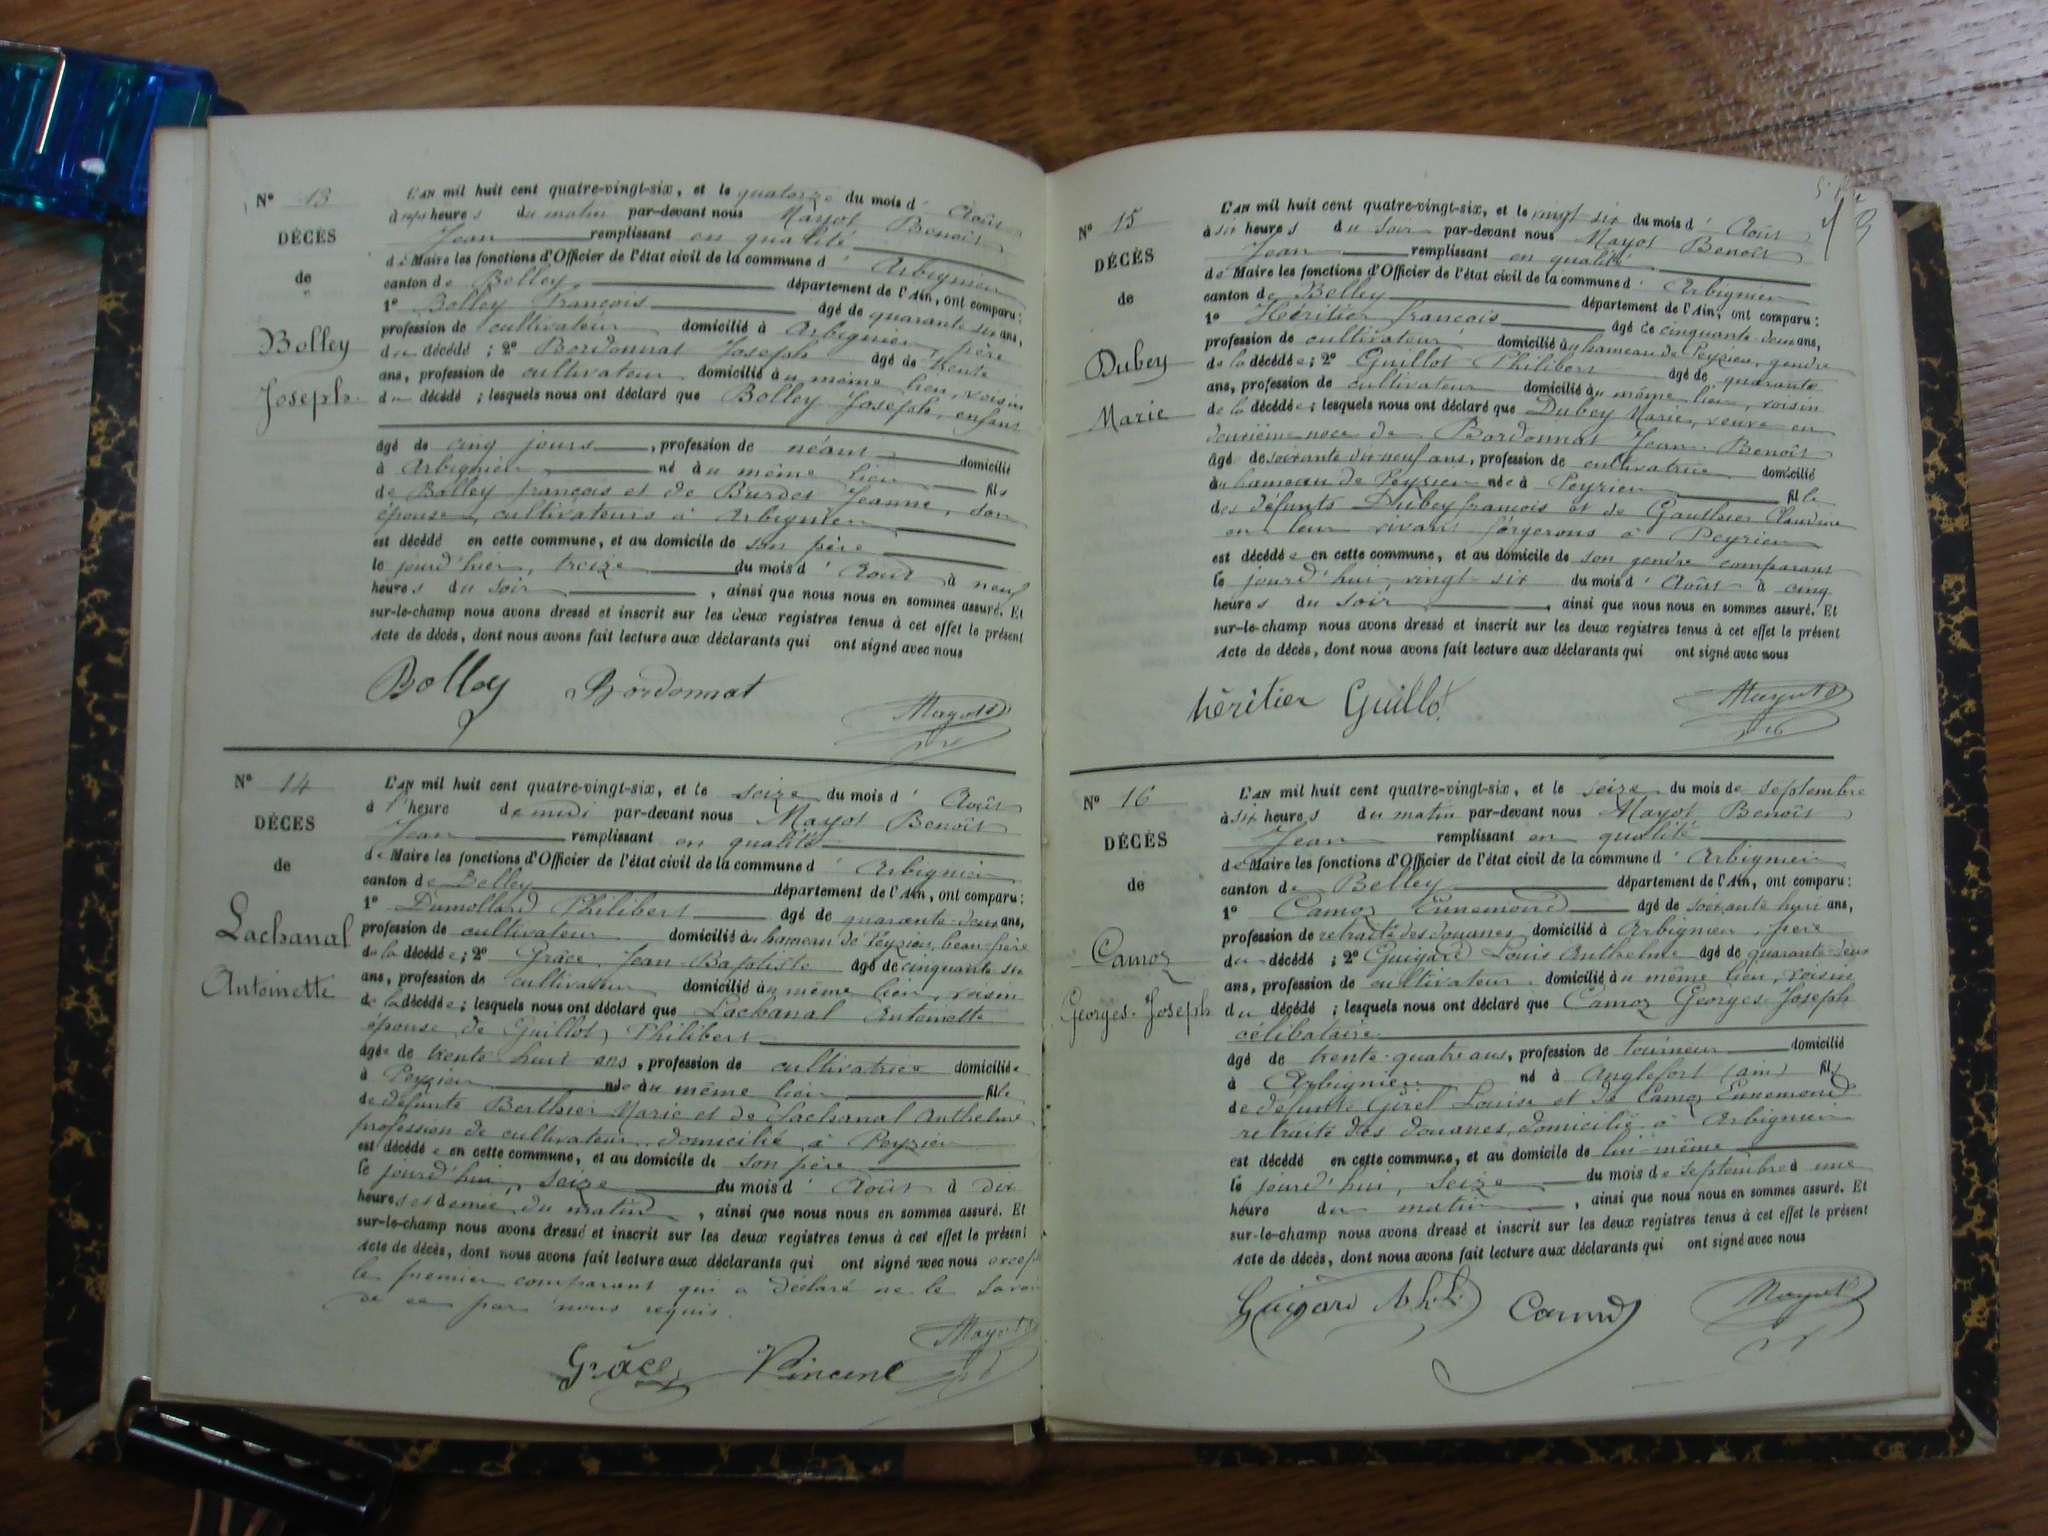 N° 13
DÉCÈS
de
Bolley
Joseph
L'AN mil huit cent quatre-vingt-six, et le quatorze du mois d'Août
à sept heures du matin par-devant nous Mayot Benoît
Jean remplissant en qualité
de Maire les fonctions d'Officier de l'état civil de la commune d'Arbignieu
canton de Belley, département de l'Ain, ont comparu:
1° Bolley François âgé de quarante six ans,
profession de cultivateur domicilié à Arbignieu, père
du décédé; 2° Bordonnat Joseph âgé de trente
ans, profession de cultivateur domicilié au même lieu, voisin
du décédé; lesquels nous ont déclaré que Bolley Joseph, enfant
âgé de cinq jours, profession de néant domicilié
à Arbignieu, né au même lieu fils
de Bolley François et de Burdet Jeanne, son
épouse, cultivateurs à Arbignieu
est décédé en cette commune, et au domicile de son père
le jourd'hier, treize du mois d'Août à neuf
heures du soir, ainsi que nous nous en sommes assuré. Et
sur-le-champ nous avons dressé et inscrit sur les deux registres tenus à cet effet le présent
Acte de décès, dont nous avons fait lecture aux déclarants qui ont signé avec nous
Bolley Bordonnat
Mayot
N° 14
DÉCES
de
Lachanal
Antoinette
L'AN mil huit cent quatre-vingt-six, et le seize du mois d'Août
à l'heure de midi par-devant nous Mayot Benoît
Jean remplissant en qualité
de Maire les fonctions d'Officier de l'état civil de la commune d'Arbignieu
canton de Belley département de l'Ain, ont comparu:
1° Dumollard Philibert âgé de quarante-deux ans,
profession de cultivateur domicilié au hameau de Peyzieu, beau-père
de la décédée; 2° Grâce Jean-Baptiste âgé de cinquante six
ans, profession de cultivateur domicilié au même lieu, voisin
de la décédée; lesquels nous ont déclaré que Lachanal Antoinette
épouse de Guillot Philibert
âgée de trente huit ans, profession de cultivatrice domiciliée
à Peyzieu née au même lieu fille
de défunte Berthier Marie et de Lachanal Anthelme
profession de cultivateur, domicilié à Peyzieu
est décédée en cette commune, et au domicile de son père
le jourd'hui, seize du mois d'Août à dix
heures et demie du matin, ainsi que nous nous en sommes assuré. Et
sur-le-champ nous avons dressé et inscrit sur les deux registres tenus à cet effet le présent
Acte de décès, dont nous avons fait lecture aux déclarants qui ont signé avec nous excepté
le premier comparant qui a déclaré ne le savoir
de ce par nous requis.
Mayot
Grâce Vincent
N° 15
DÉCÈS
de
Dubey
Marie
L'AN mil huit cent quatre-vingt-six, et le vingt six du mois d'Août
à six heures du soir par-devant nous Mayot Benoît
Jean remplissant en qualité
de Maire les fonctions d'Officier de l'état civil de la commune d'Arbignieu
canton de Belley département de l'Ain, ont comparu:
1° Héritier François âgé de cinquante-deux ans,
profession de cultivateur domicilié au hameau de Peyzieu, gendre
de la décédée; 2° Guillot Philibert âgé de quarante
ans, profession de cultivateur domicilié au même lieu, voisin
de la décédée; lesquels nous ont déclaré que Dubey Marie, veuve en
deuxième noce de Bordonnat Jean-Benoît
âgé de soixante dix neuf ans, profession de cultivatrice domicilié
au hameau de Peyzieu née à Peyzieu fille
des défunts Dubey François et de Gauthier Claudine
en leur vivant forgerons à Peyzieu
est décédée en cette commune, et au domicile de son gendre comparant
le jourd'hui vingt-six du mois d'Août à cinq
heures du soir, ainsi que nous nous en sommes assuré. Et
sur-le-champ nous avons dressé et inscrit sur les deux registres tenus à cet effet le présent
Acte de décès, dont nous avons fait lecture aux déclarants qui ont signé avec nous
héritier Guillot
Mayot
N° 16
DÉCÈS
de
Camoz
Georges-Joseph
L'AN mil huit cent quatre-vingt-six, et le seize du mois de septembre
à six heures du matin par-devant nous Mayot Benoît
Jean remplissant en qualité
de Maire les fonctions d'Officier de l'état civil de la commune d'Arbignieu
canton de Belley département de l'Ain, ont comparu:
1° Camoz Ennemond âgé de soixante huit ans,
profession de retraité des douanes domicilié à Arbignieu, père
du décédé; 2° Guigard Louis Anthelme âgé de quarante-deux
ans, profession de cultivateur domicilié au même lieu, voisin
du décédé; lesquels nous ont déclaré que Camoz Georges-Joseph
célibataire
âgé de trente-quatre ans, profession de tourneur domicilié
à Arbignieu né à Anglefort (ain) fils
de défunte Gérel Louise et de Camoz Ennemond
retraité des douanes domicilié à Arbignieu
est décédé en cette commune, et au domicile de lui-même
le jourd'hui, seize du mois de septembre à une
heure du matin, ainsi que nous nous en sommes assuré. Et
sur-le-champ nous avons dressé et inscrit sur les deux registres tenus à cet effet le présent
Acte de décès, dont nous avons fait lecture aux déclarants qui ont signé avec nous
Guigard Camoz
Mayot